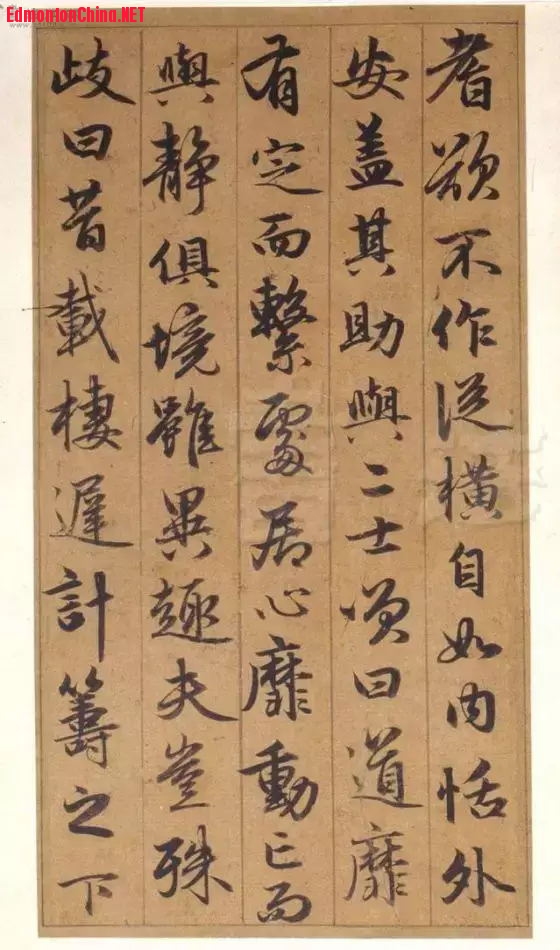 EdmontonChina.NET
耆欲不作從橫自如內恬外
安蓋其助與二士頌曰道靡
有定而繫處居心靡動亡而
與靜俱境雖異趣夫豈殊
歧曰昔載棲遲計籌之下